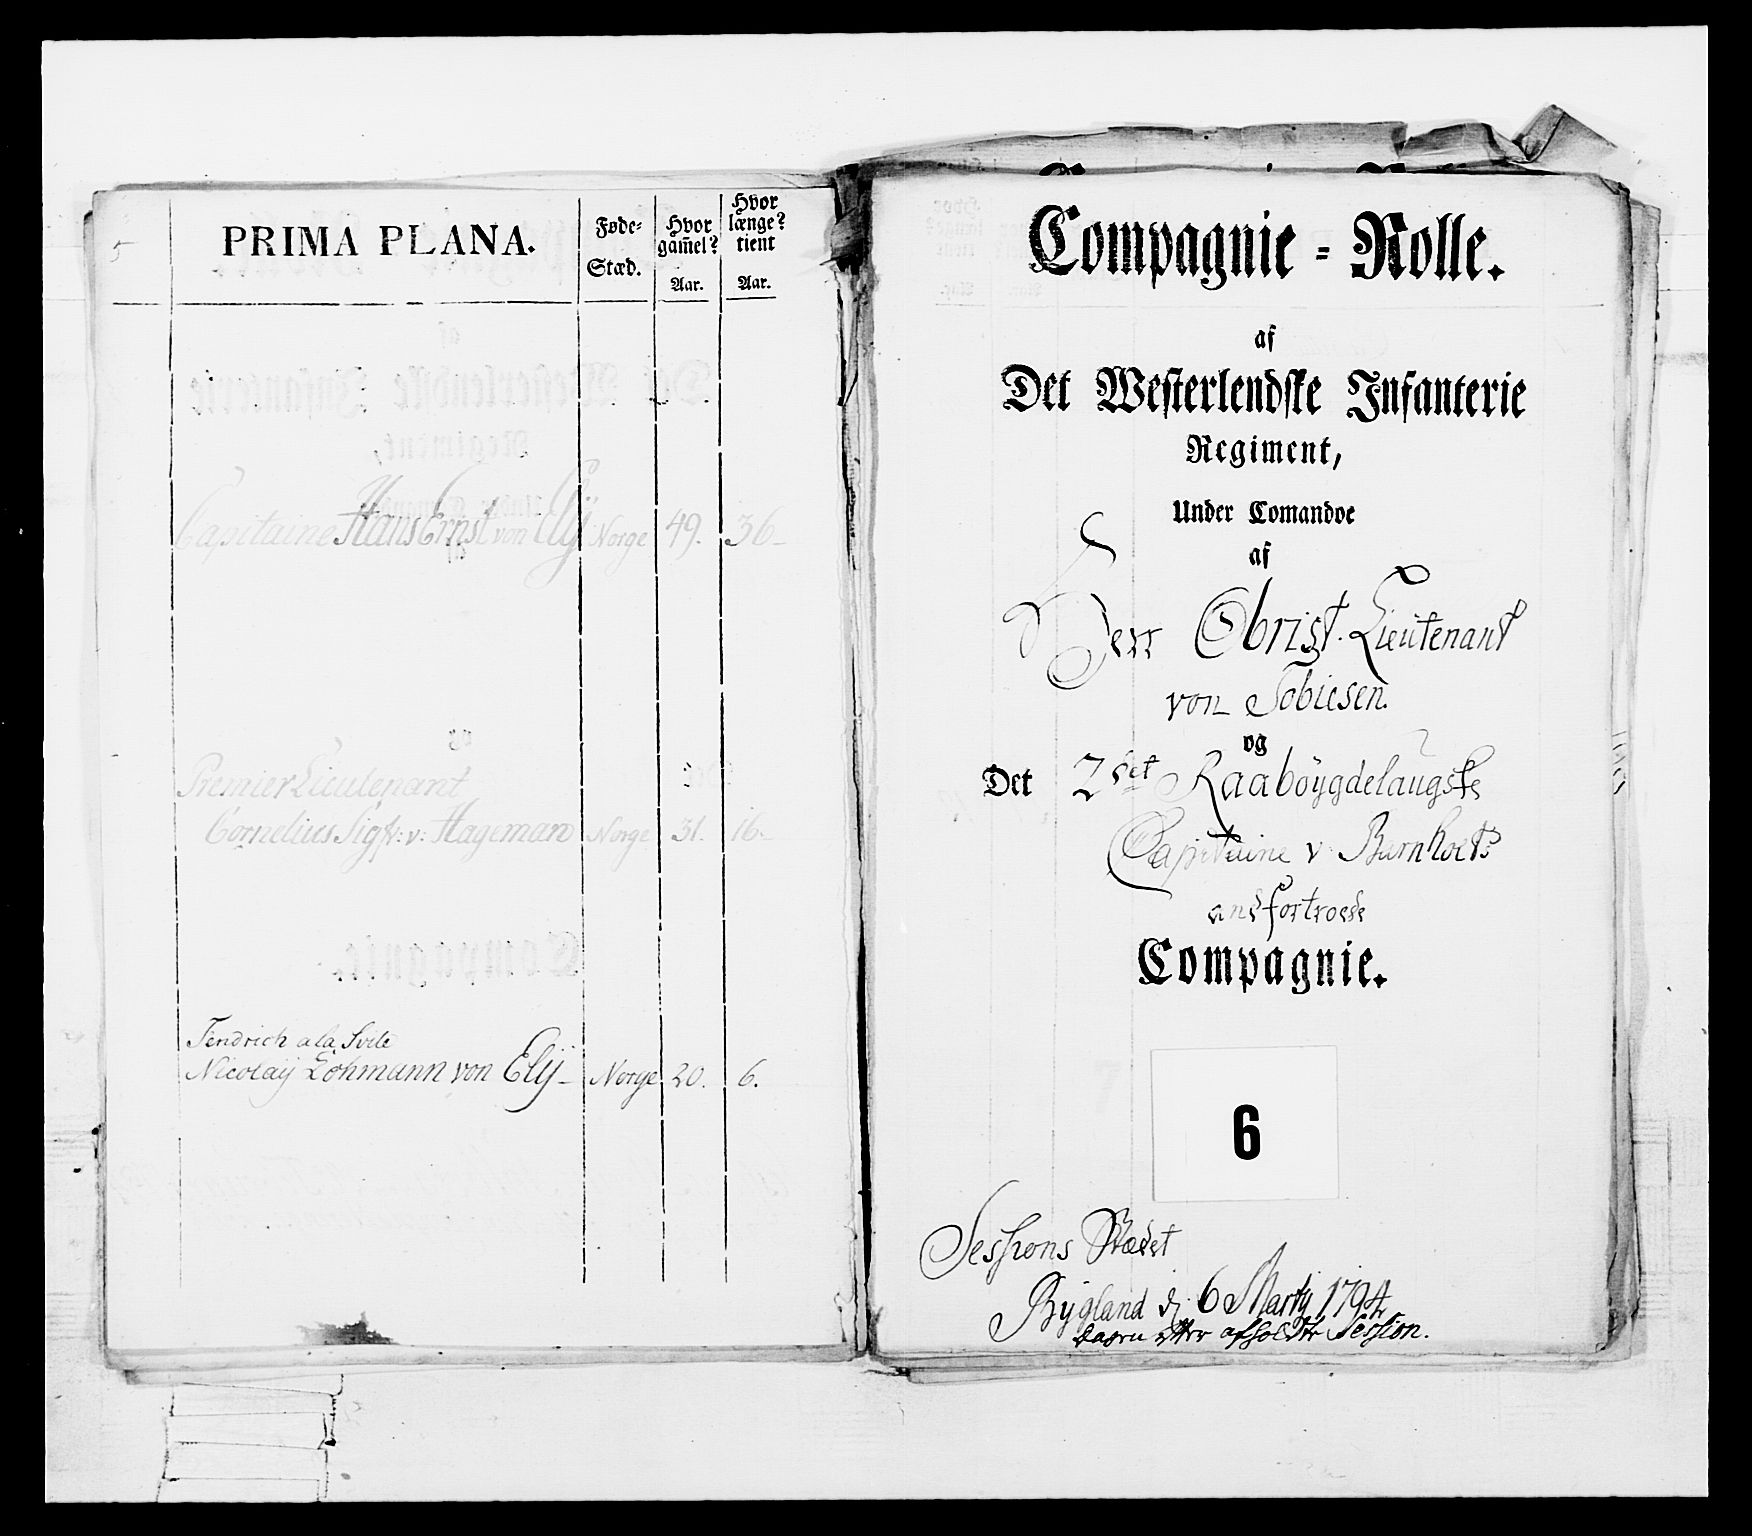 PRIMA PLANA.
Føde-
Stæd.
Hvor
gam̄el?
Aar.
Hvor
længe?
tient
Aar.
5
Capitaine Hans Ernst von Elÿ Norge 49. 36-
Premier Lieutenant
Cornelius Sigfr: v: Hageman Norge 31. 16-
Fendrich a la Svite
Nicolaÿ Lohmann von Elÿ- Norge 20. 6.
Compagnie-Rolle.
af
Det Westerlendske Infanterie
Regiment,
Under Comandoe
af
Herr Obrist-Lieutenant
von Tobiesen.
og
Det 2det Raabÿgdelaugske
Capitaine v. Barnholts
andfortroede
Compagnie.
6
Sessions Stædet
Bÿgland d. 6 Martÿ 1794
Dagen efter afholdte Session.